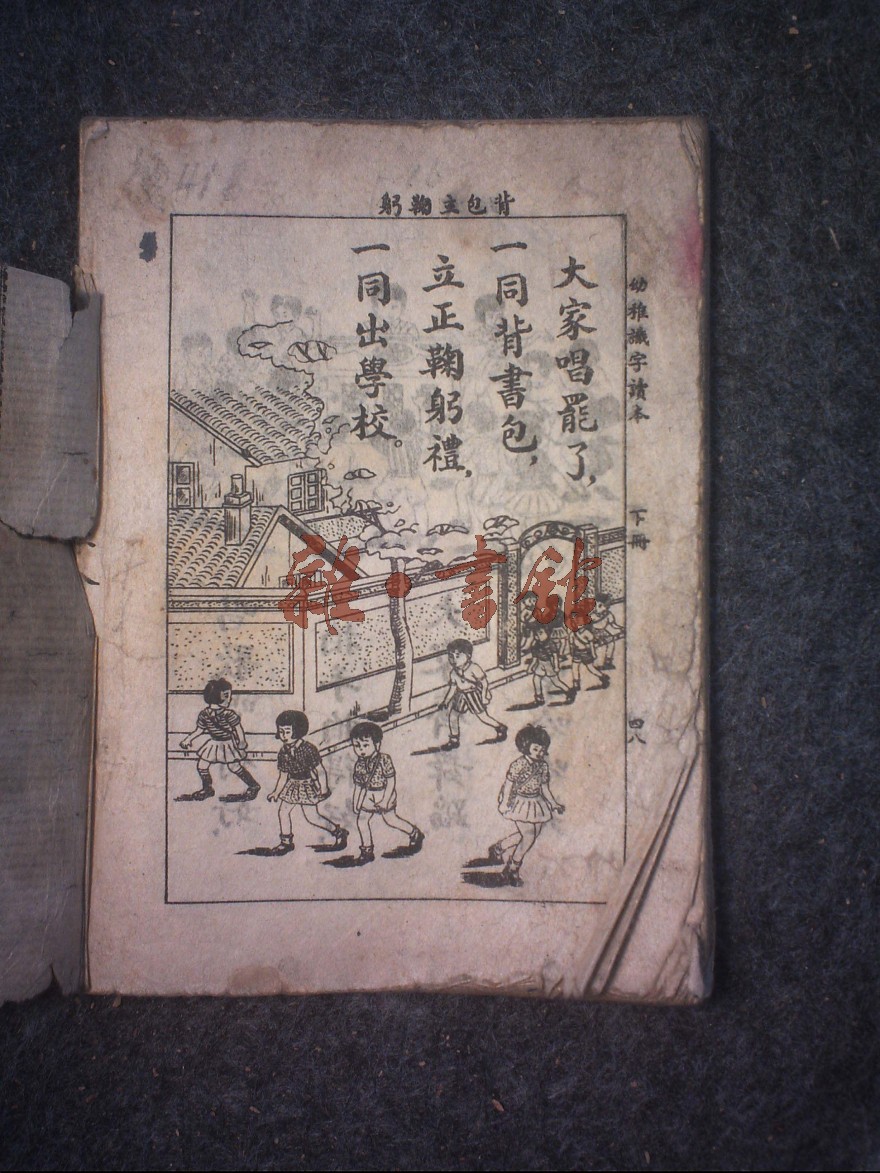 背包立鞠躬
大家唱罷了，
一同背書包，
立正鞠躬禮，
一同出學校。
幼稚識字讀本 下冊 四八
雜·書館